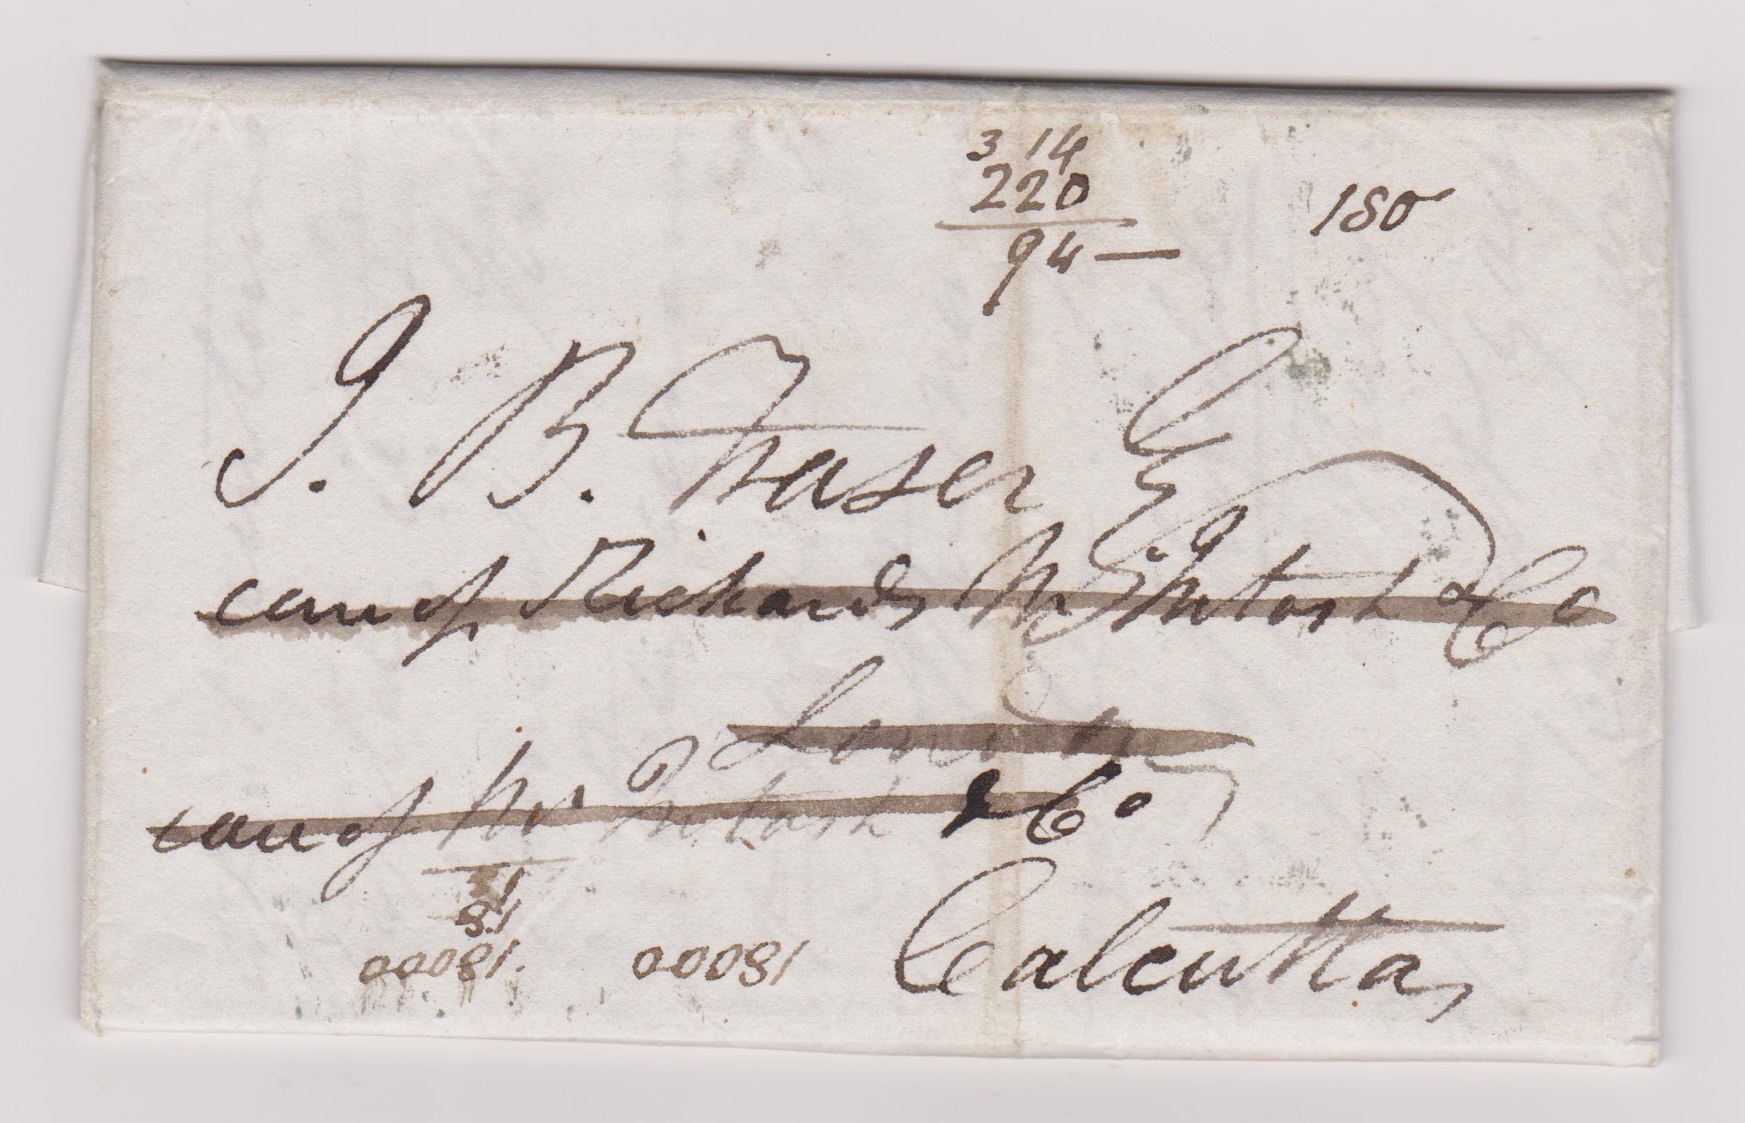 3 14
220
94 —
180
J. B. Fraser E
care of Richards McIntosh & Co
London
care of McIntosh & Co
Calcutta,
18
18000
18000